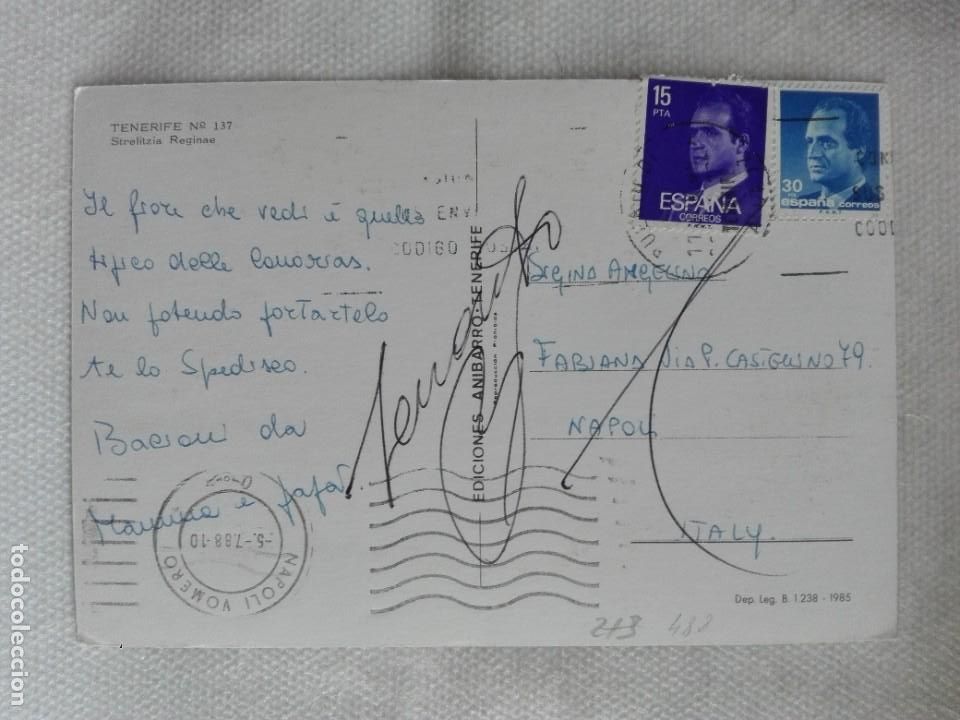 TENERIFE Nº 137
Strelitzia Reginae
Il fiore che vedi è quello
tipico delle Canarias.
Non potendo portartelo
te lo spedisco.
Bacioni da
Mamma e papà
EDICIONES ANIBARRO-TENERIFE
Reproducción Prohibida
15
PTA
ESPAÑA
CORREOS
30
españa correos
CODIGO
FABIANA VIA P. CASTELLINO 79.
NAPOLI
ITALY.
-5.-7.88-10
NAPOLI VOMERO
Dep. Leg. B. 1238 - 1985
273 488
todocoleccion